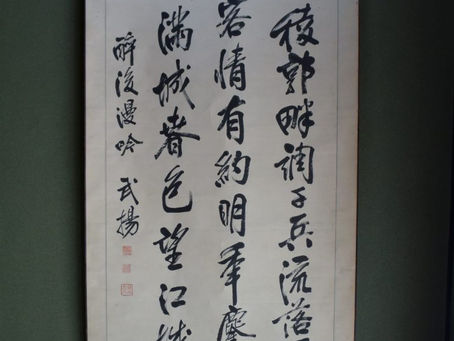 稜郭畔調子兵流落
客情有約明年
滿城春色望江
醉後漫吟 武揚